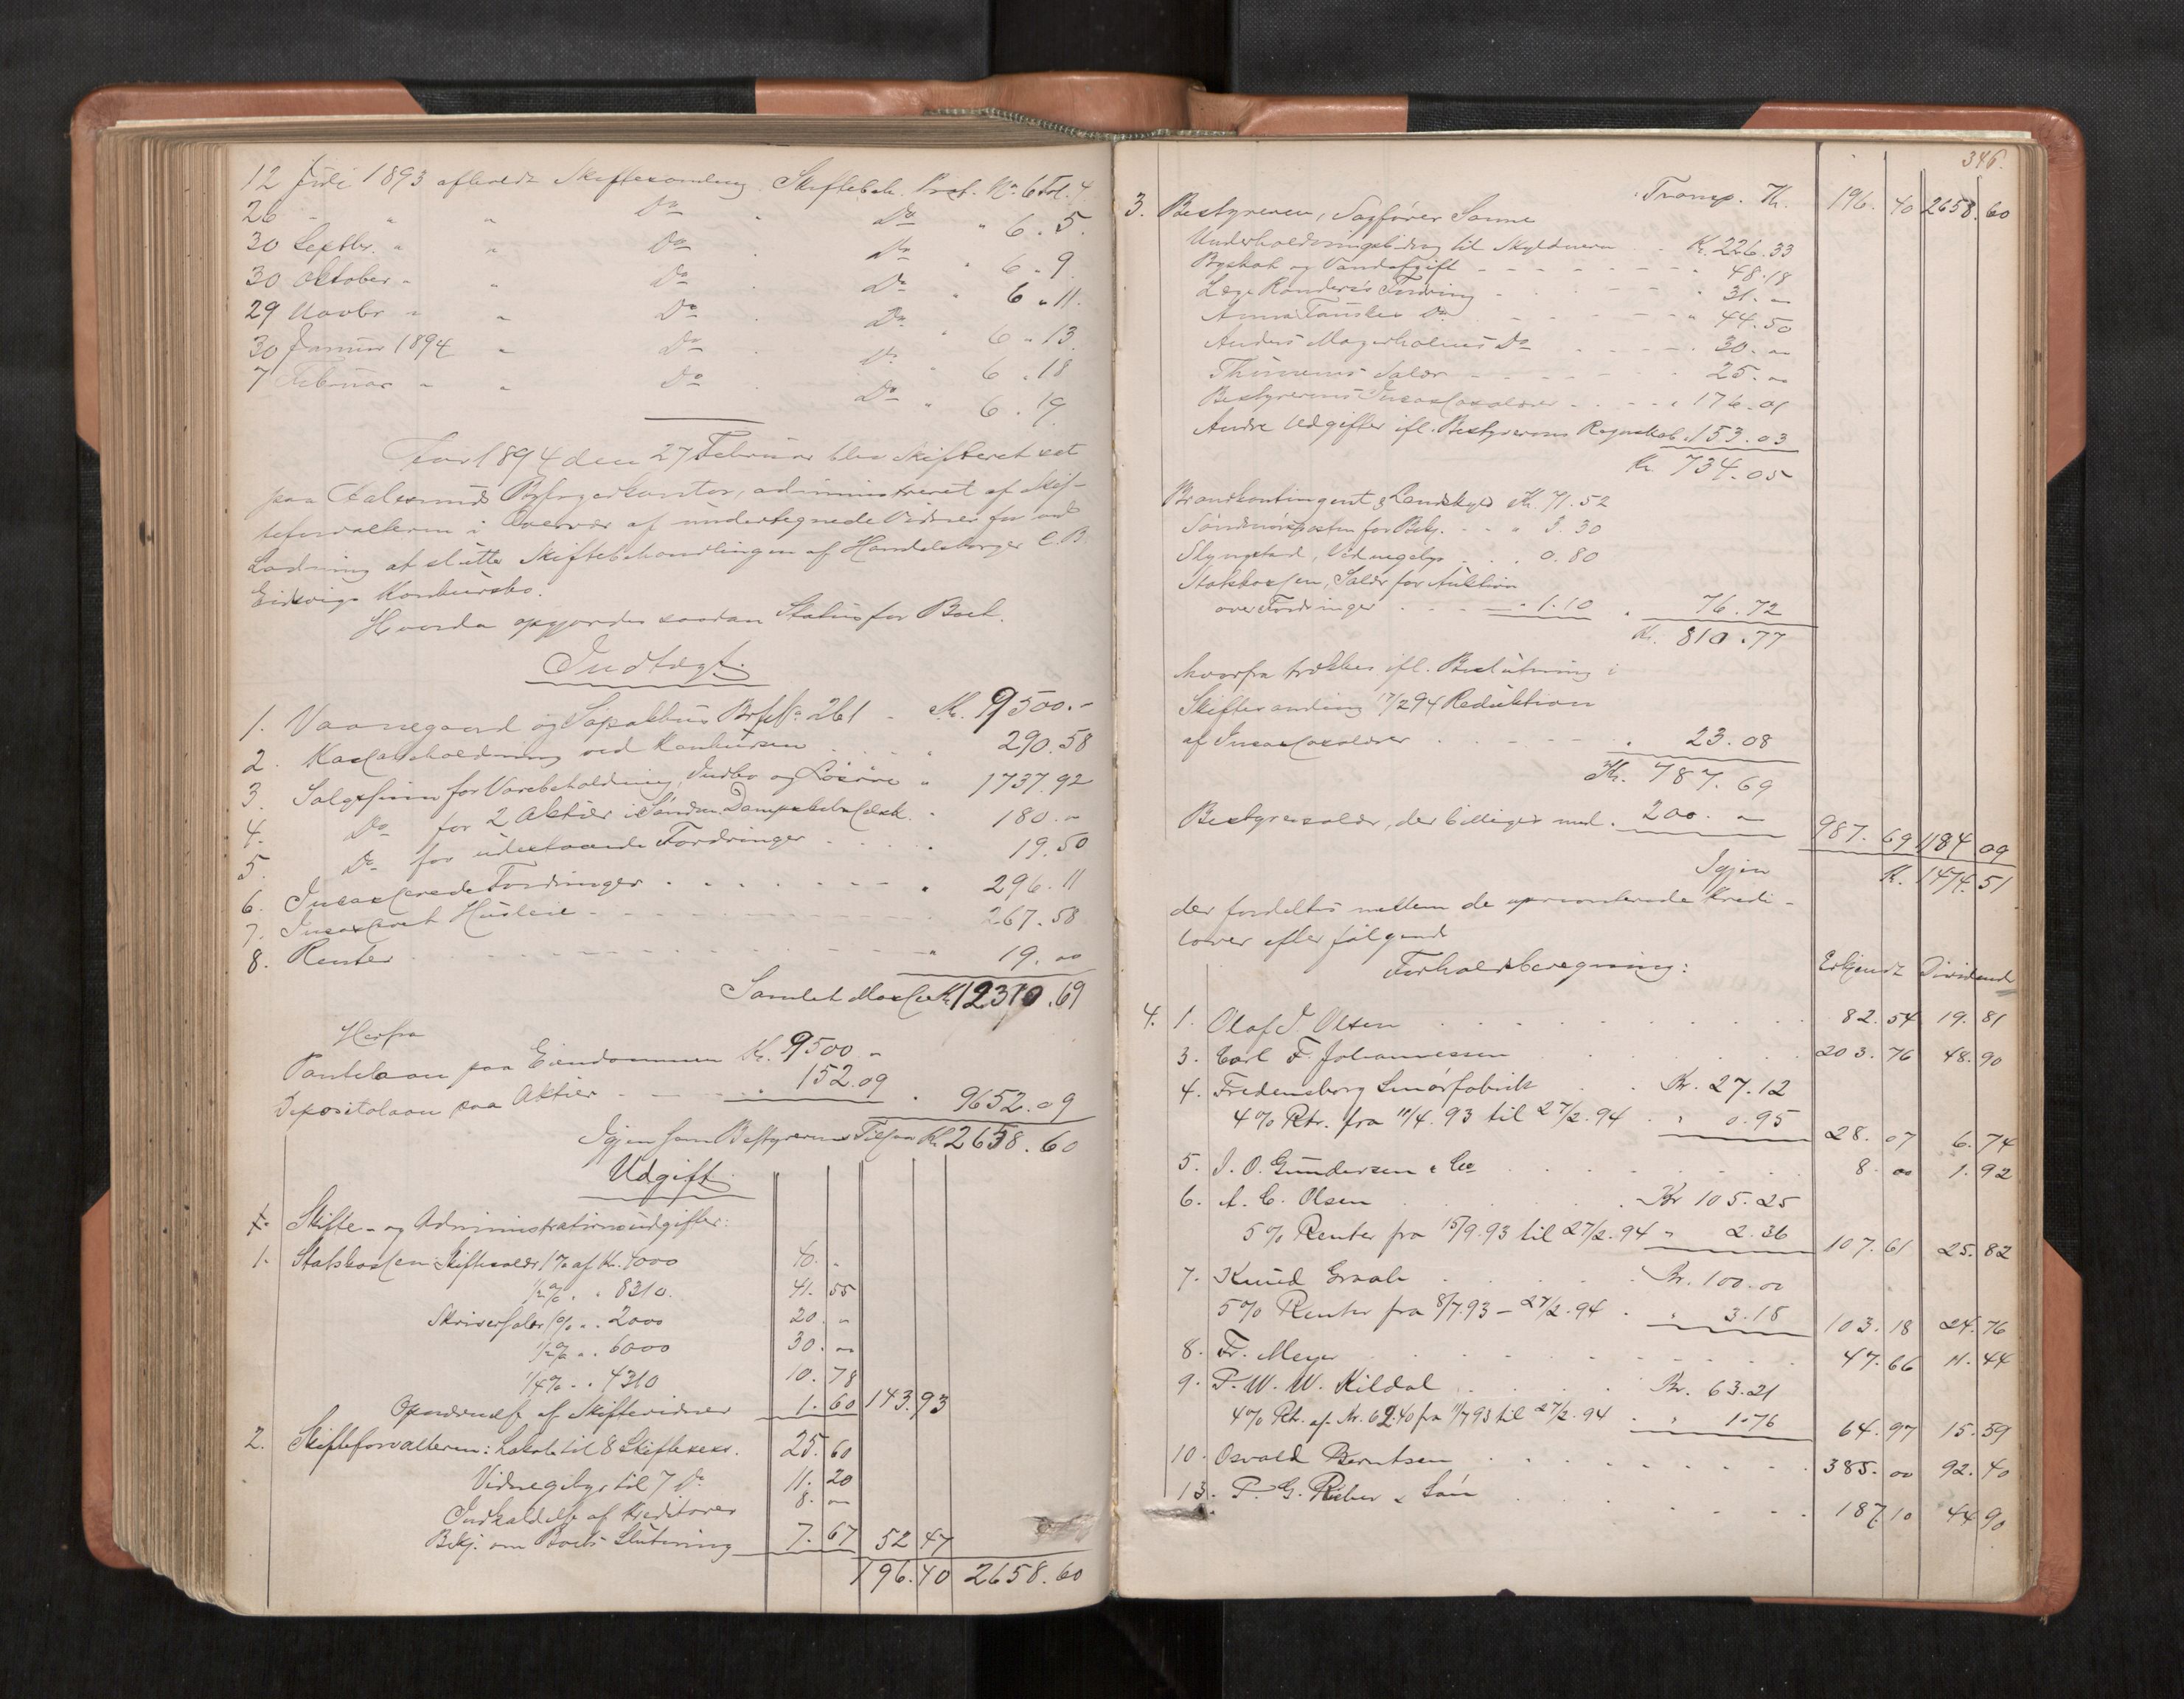 12 Juli 1893 afholdt Skiftesamling Skiftebeh. Prot. No. 6 Fol. 4
26 " " " Do " Do " 6 . 5.
30 Septbr. " " Do " Do " 6 . 9
30 Oktober " " Do " Do " 6 . 11.
29 Novbr " " Do " Do " 6 . 13.
30 Januar 1894 " Do " Do " 6 . 18
7 Februar " " Do " Do " 6 . 19
Aar 1894 den 27 Februar blev Skifteret sat
paa Aalesunds Byfogedkontor, administreret af Skif-
teforvalteren i Overvær af undertegnede Vidner for ved
Lodning at slutte Skiftebehandlingen af Handelsborger C. B.
Eidsvigs Konkursbo.
Hvorda opgjordes saadan Status for Boet.
Indtægt.
1. Vaanegaard og Søpakhus Brf No. 261 - Kr. 9500.-
2. Kassabeholdning ved Konkursen . . . . 290.58
3. Salgssum for Varebeholdning, Indbo og Løsøre " 1737.92
4. Do for 2 Aktier i Søndm. Dampskibsselsk. " 180.-
5. Do for udestaaende Fordringer . . . . 19.50
6. Incasserede Fordringer . . . . . . . . 296.11
7. Incasseret Husleie - - - - - - 267.58
8. Renter - - - - - - " 19.00
Samlet Masse Kr 12310.69
Herfra
Pantelaan paa Eiendommen Kr. 9500 -
Depositolaan paa Aktier - - - . 152.09 . 9652.09
Igjen som Bestyrerens Tilsva Kr. 2658.60
Udgift.
1. Skifte- og Administrationsudgifter:
1. Statskassen: Skiftesalær 1% af Kr. 4000 40. -
1/2% . . 8310. 41. 55
Skriversalær 1% . . 2000 20. -
1/2% . . 6000 30. 00
1/4% - . 4310 10. 78
Opnævnelse af Skiftevidner 1. 60 143.93
2. Skifteforvalteren: Lokale til 8 Skiftesess. 25. 60
Vidnegebyr til 7 Do 11. 20
Indkaldelse af Kreditorer 8. 00
Bekj. om Boets Slutning 7. 67 52 47
196.40 2658.60
346.
Transp. Kr. 196. 40 2658.60
3. Bestyreren, Sagfører Sanne
Underholdningsbidrag til Skyldneren - Kr. 226.33
Byskat og Vandafgift - - - - - - 48.18
Læge Randers's Fordring - - - - " 31.00
Anna Do - - - - " 44.50
Anders Magerholms Do - - - - 30.00
Salær - - - - - 25.00
Bestyrerens Incassosalærer - - - . 176.01
Andre Udgifter ifl. Bestyrerens Regnskab . 153.03
Kr. 734.05
Brandkontingent & Landskyld Kr. 71.52
Søndmørsposten for Bekj. - - " 3.30
Slyngstad, Vidnegebyr . . . 0.80
Statskassen, Salær for Auktion
over Fordringer . . . - . 1.10 . 76.72
Kr. 810.77
hvorfra trækkes ifl. Beslutning i
Skiftesamling 17/2 94 Reduktion
af Incassosalærer . . . . . . 23.08
Kr. 787.69
Bestyrersalær, der billiges med . 200. - 987. 69 1184 09
Igjen Kr. 1474.51
der fordeltes mellem de uprioriterede Kredi-
torer efter følgende
Forholdsberegning: Erkjendt Dividend
4. 1. Olaf J. Olsen . . . . . . 82.54 19.81
3. Carl F. Johannessen . . . . 203.76 48.90
4. Fredensborg Smørfabrik . . Kr. 27.12
4% Rtr. fra 11/4.93 til 27/2.94 . " 0.95 28. 07 6.74
5. J. O. Gundersen & Co . . . . . 8. 00 1.92
6. A. C. Olsen . . . . Kr 105.25
5% Renter fra 15/9.93 til 27/2.94 " 2.36 107.61 25.82
7. Knud Graah . . . . Kr. 100.00
5% Renter fra 8/7.93 - 27/2.94 . " 3.18 103.18 24.76
8. Fr. Meyer . . . . . . . 47.66 11.44
9. P. W. W. Kildal . . . . Kr. 63.21
4% Rtr. af Kr. 62.40 fra 11/7 93 til 27/2.94 . " 1.76 64.97 15.59
10. Osvald Berntsen . . . . . . . 385.00 92.40
13. P. G. Rieber & Søn . . . . . 187.10 44.90